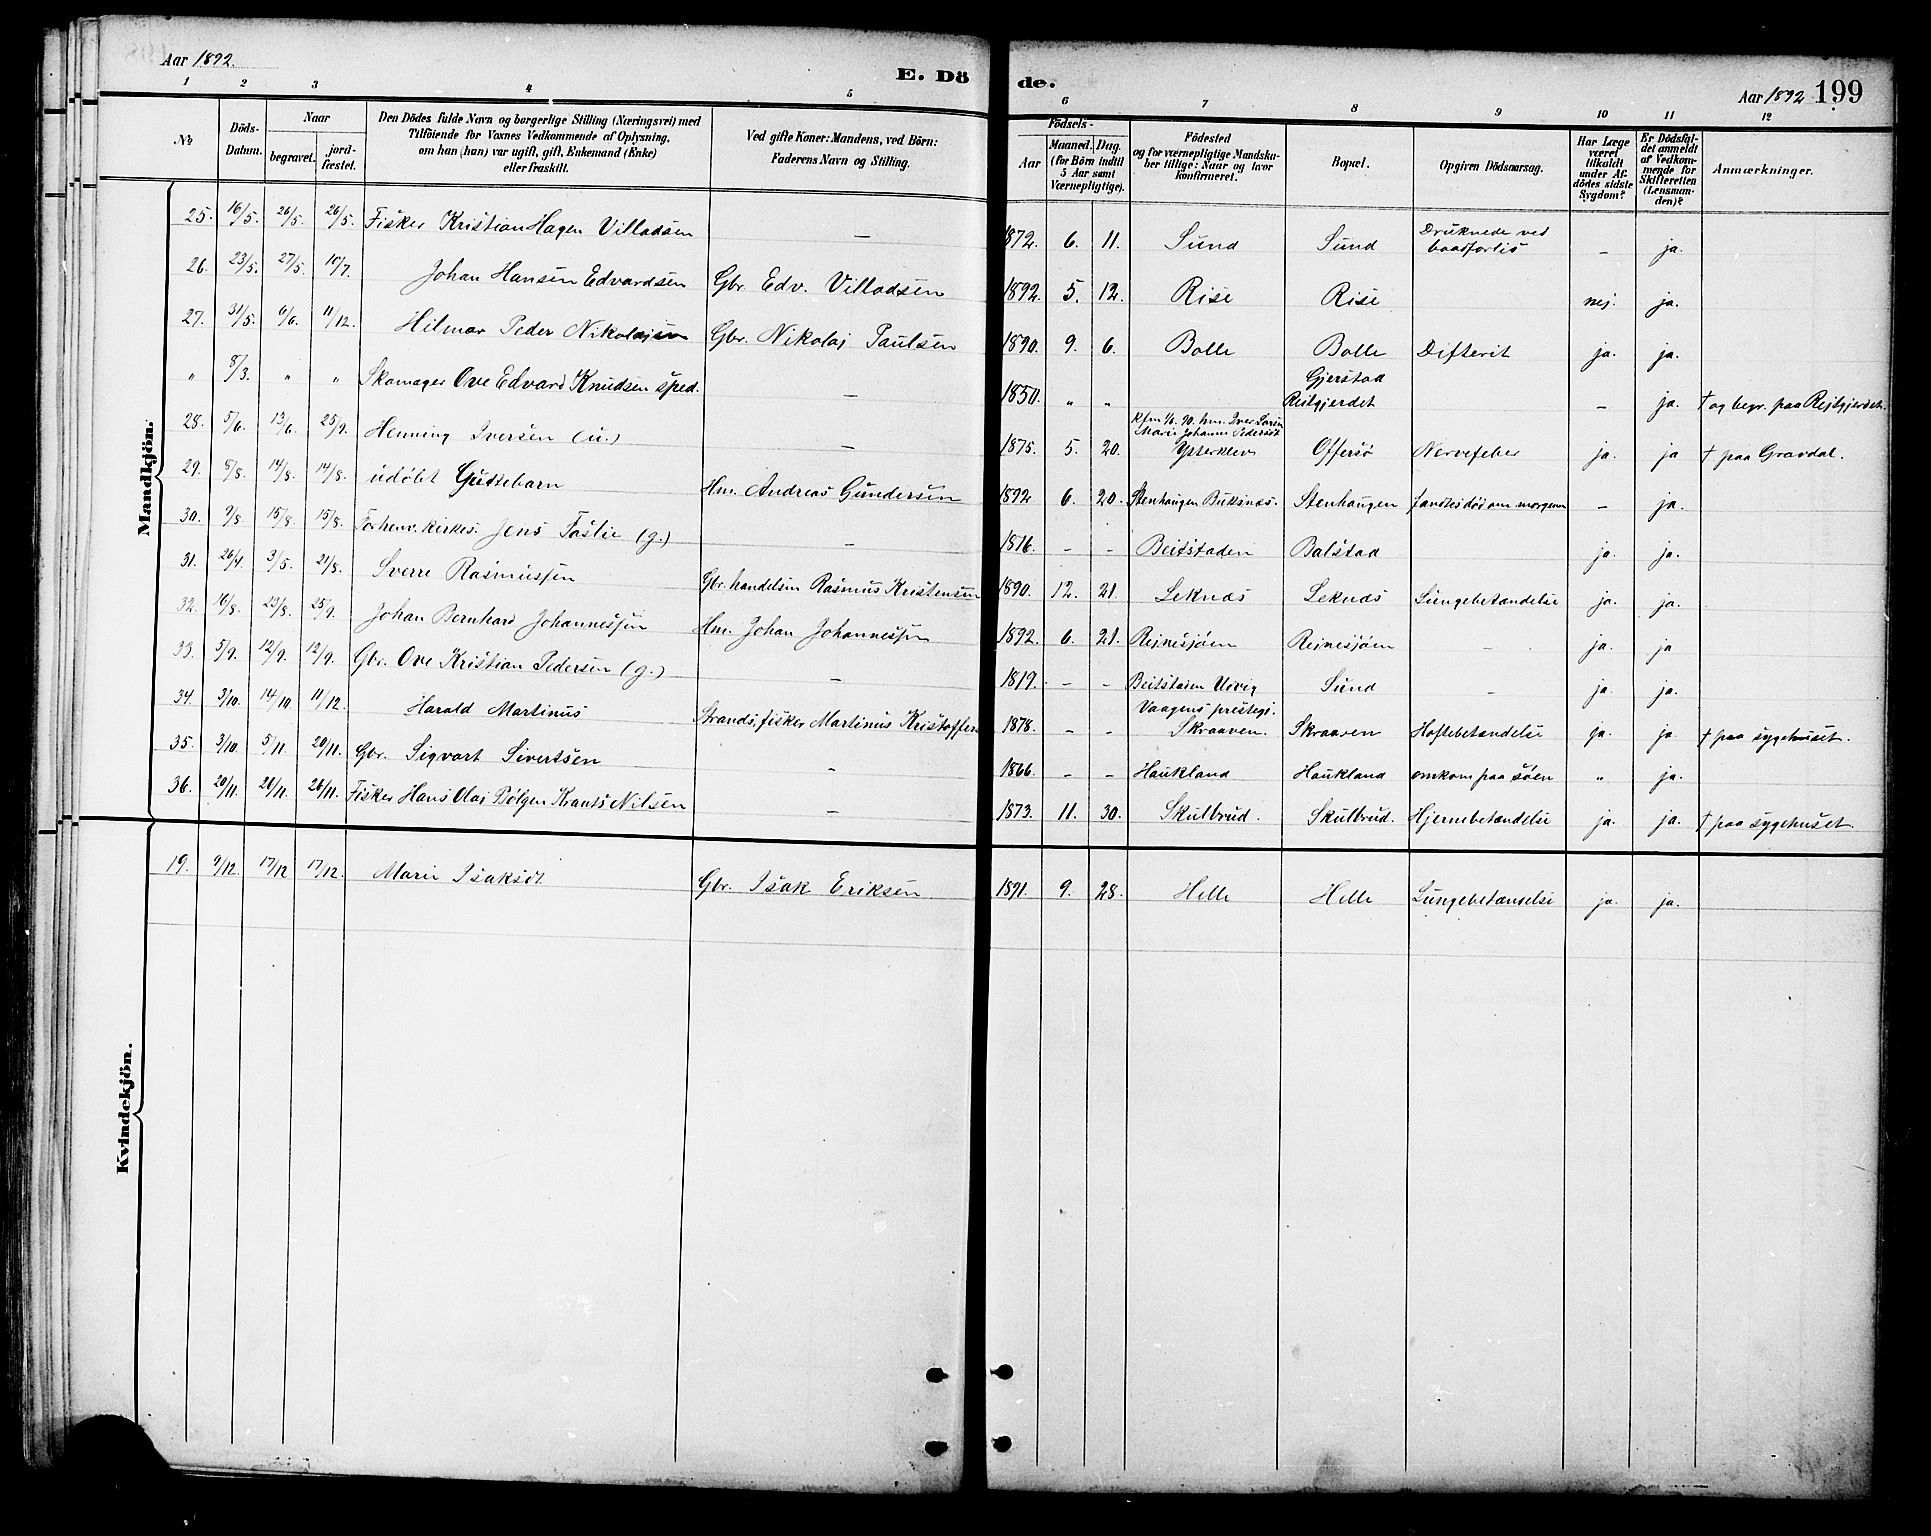 Aar 1892. E. Dö de. Aar 1892 199
1 2 3 4 5 6 7 8 9 10 11 12
No
Döds-Datum.
Naar
begravet. jordfæstet.
Den Dödes fulde Navn og borgerlige Stilling (Næringsvei) med
Tilföiende for Voxnes Vedkommende af Oplysning.
om han (hun) var ugift, gift, Enkemand (Enke)
eller fraskilt.
Ved gifte Koner: Mandens, ved Börn:
Faderens Navn og Stilling.
Födsels-
Aar Maaned. Dag.
(for Börn indtil
5 Aar samt
Værnepligtige).
Födested
og for værnepligtige Mandska-
ber tillige: Naar og hvor
konfirmeret.
Bopæl.
Opgiven Dödsaarsag.
Har Læge
været
tilkaldt
under Af-
dödes sidste
Sygdom?
Er Dödsfal-
det anmeldt
af Vedkom-
mende for
Skifteretten
(Lensman-
den)?
Anmærkninger.
Mandkjön.
25. 16/5. 26/5. 26/5. Fisker Kristian Hagen Villadsen — 1872. 6. 11. Sund Sund Druknede ved baadforlis – ja.
26. 23/5. 27/5. 10/7. Johan Hansen Edvardsen Gbr. Edv. Villadsen 1892. 5. 12. Rise Rise nej. ja.
27. 31/5. 6/6. 11/12. Hilmar Peder Nikolajsen Gbr. Nikolaj Paulsen 1890. 9. 6. Bolle Bolle Difterit ja. ja.
" 8/3. " " Skomager Ove Edvard Knudsen sped. — 1850. " " Gjerstad Reitgjerdet – ja. † og begr. paa Rejtgjerdet.
28. 5/6. 13/6. 25/9. Henning Iversen (u.) — 1875. 5. 20. Ysterklev Offersø Nervefeber ja. ja † paa Gravdal.
29. 8/8. 14/8. 14/8. udøbt Guttebarn Hm. Andreas Gundersen 1892 6. 20. Stenhaugen Buksnæs. Stenhaugen fandtes død om morgenen – ja.
30. 9/8. 15/8. 15/8. Forhenv. kirkes. Jens Faslie (g.) — 1816. – – Beitstaden Balstad ja. ja.
31. 26/4. 3/5. 21/8. Sverre Rasmussen Gbr. handelsm Rasmus Kristensen 1890. 12. 21. Leknæs Leknæs Lungebetændelse ja. ja.
32. 16/8. 23/8. 25/9. Johan Bernhard Johannessen Hm. Johan Johannessen 1892. 6. 21. Rejnesjøen Rejnesjøen – ja. ja
33. 5/9. 12/9. 12/9. Gbr. Ove Kristian Pedersen (g.) – 1819. – – Beitstaden Sund – ja. ja.
34. 3/10. 14/10. 11/12. Harald Martinus Strands. fisker Martinus Kristoffersen 1878. – – Vaagens prestegj. Skraaven. Skraaven Hoftebetændelse ja. ja. † paa sygehuset.
35. 3/10. 5/11. 20/11. Gbr. Sigvart Sivertsen – 1866. – – Haukland Haukland omkom paa søen " ja.
36. 20/11. 26/11. 26/11. Fisker Hans Olai Bølgen Krants Nilsen – 1873. 11. 30. Skulbrud. Skulbrud. Hjernebetændelse ja. ja. † paa sygehuset.
Kvindekjön.
19. 9/12. 17/12 17/12. Marie Isaksdt Gbr. Isak Eriksen. 1891. 9. 28. Helle Helle Lungebetændelse ja. ja.